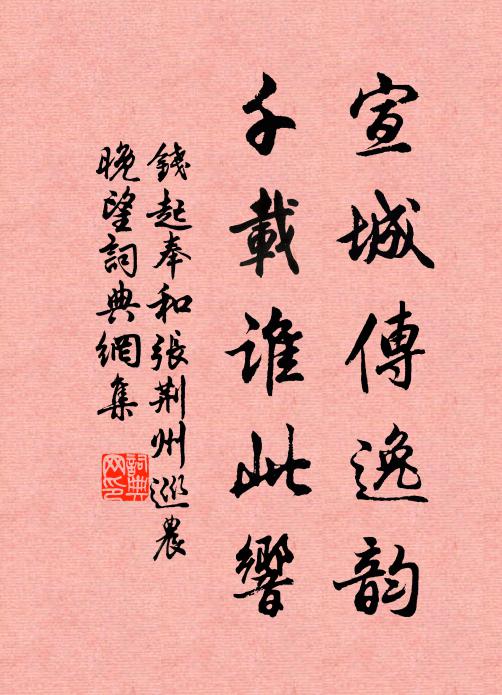 宣城傳逸韵
千載誰此響
錢起奉和張荊州巡農
晚望詞典網集
詞典
网印